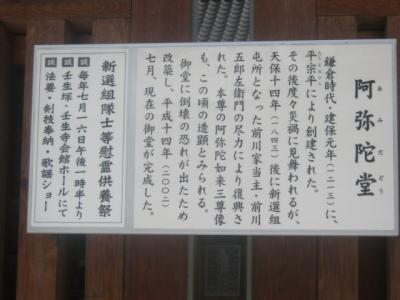 阿弥陀堂
あみだどう
鎌倉時代・建保元年(一二一三)に、
平宗平により創建された。
その後度々災禍に見舞われるが、
天保十四年(一八四三)後に新選組
屯所となった前川家当主・前川
五郎左衛門の尽力により復興さ
れた。本尊の阿弥陀如来三尊像
も、この頃の造顕とみられる。
御堂に倒壊の恐れが出たため
改築し、平成十四年(二〇〇二)
七月、現在の御堂が完成した。
新選組隊士等慰霊供養祭
毎年七月一六日午後一時半より
壬生塚・壬生寺会館ホールにて
法要・剣技奉納・歌謡ショー